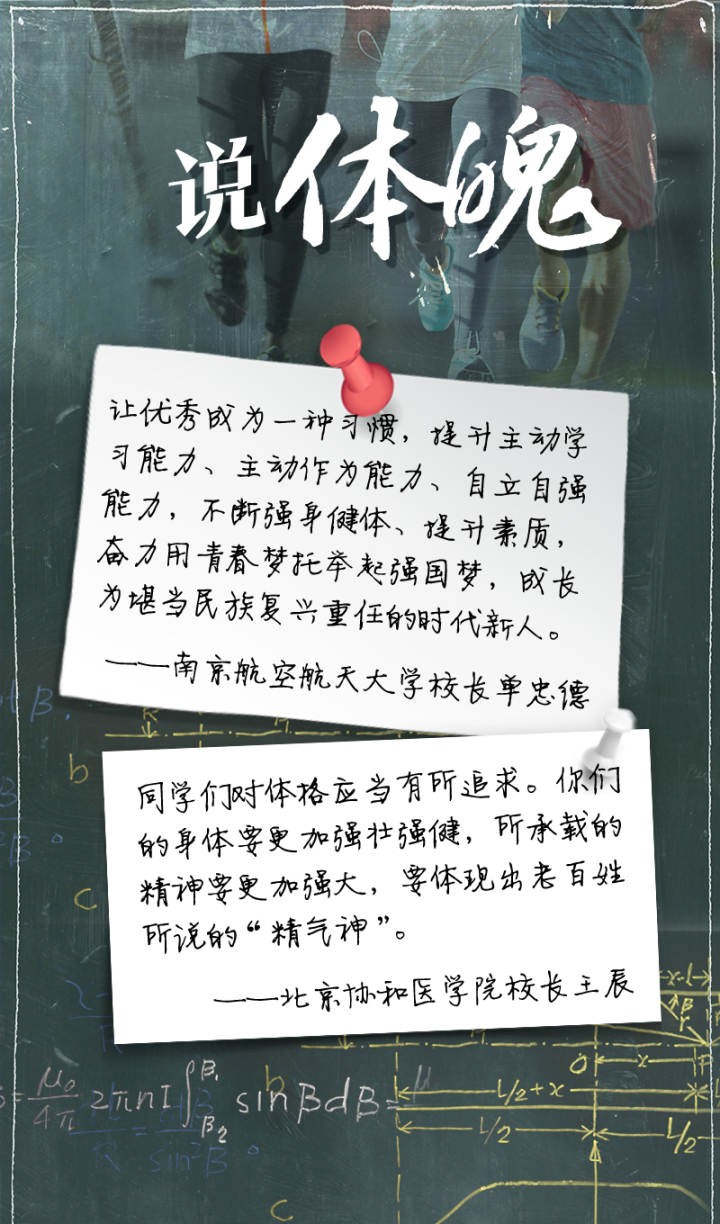 说体魄
让优秀成为一种习惯，提升主动学
习能力、主动作为能力、自立自强
能力，不断强身健体、提升素质，
奋力用青春梦托举起强国梦，成长
为堪当民族复兴重任的时代新人。
——南京航空航天大学校长单忠德
同学们对体格应当有所追求。你们
的身体要更加强壮强健，所承载的
精神要更加强大，要体现出老百姓
所说的“精气神”。
——北京协和医学院校长王辰
b
c
O
x
μ₀/4π 2πnI∫β₁β₂ sinβdβ=
L/2+x
L/2
L/2
c